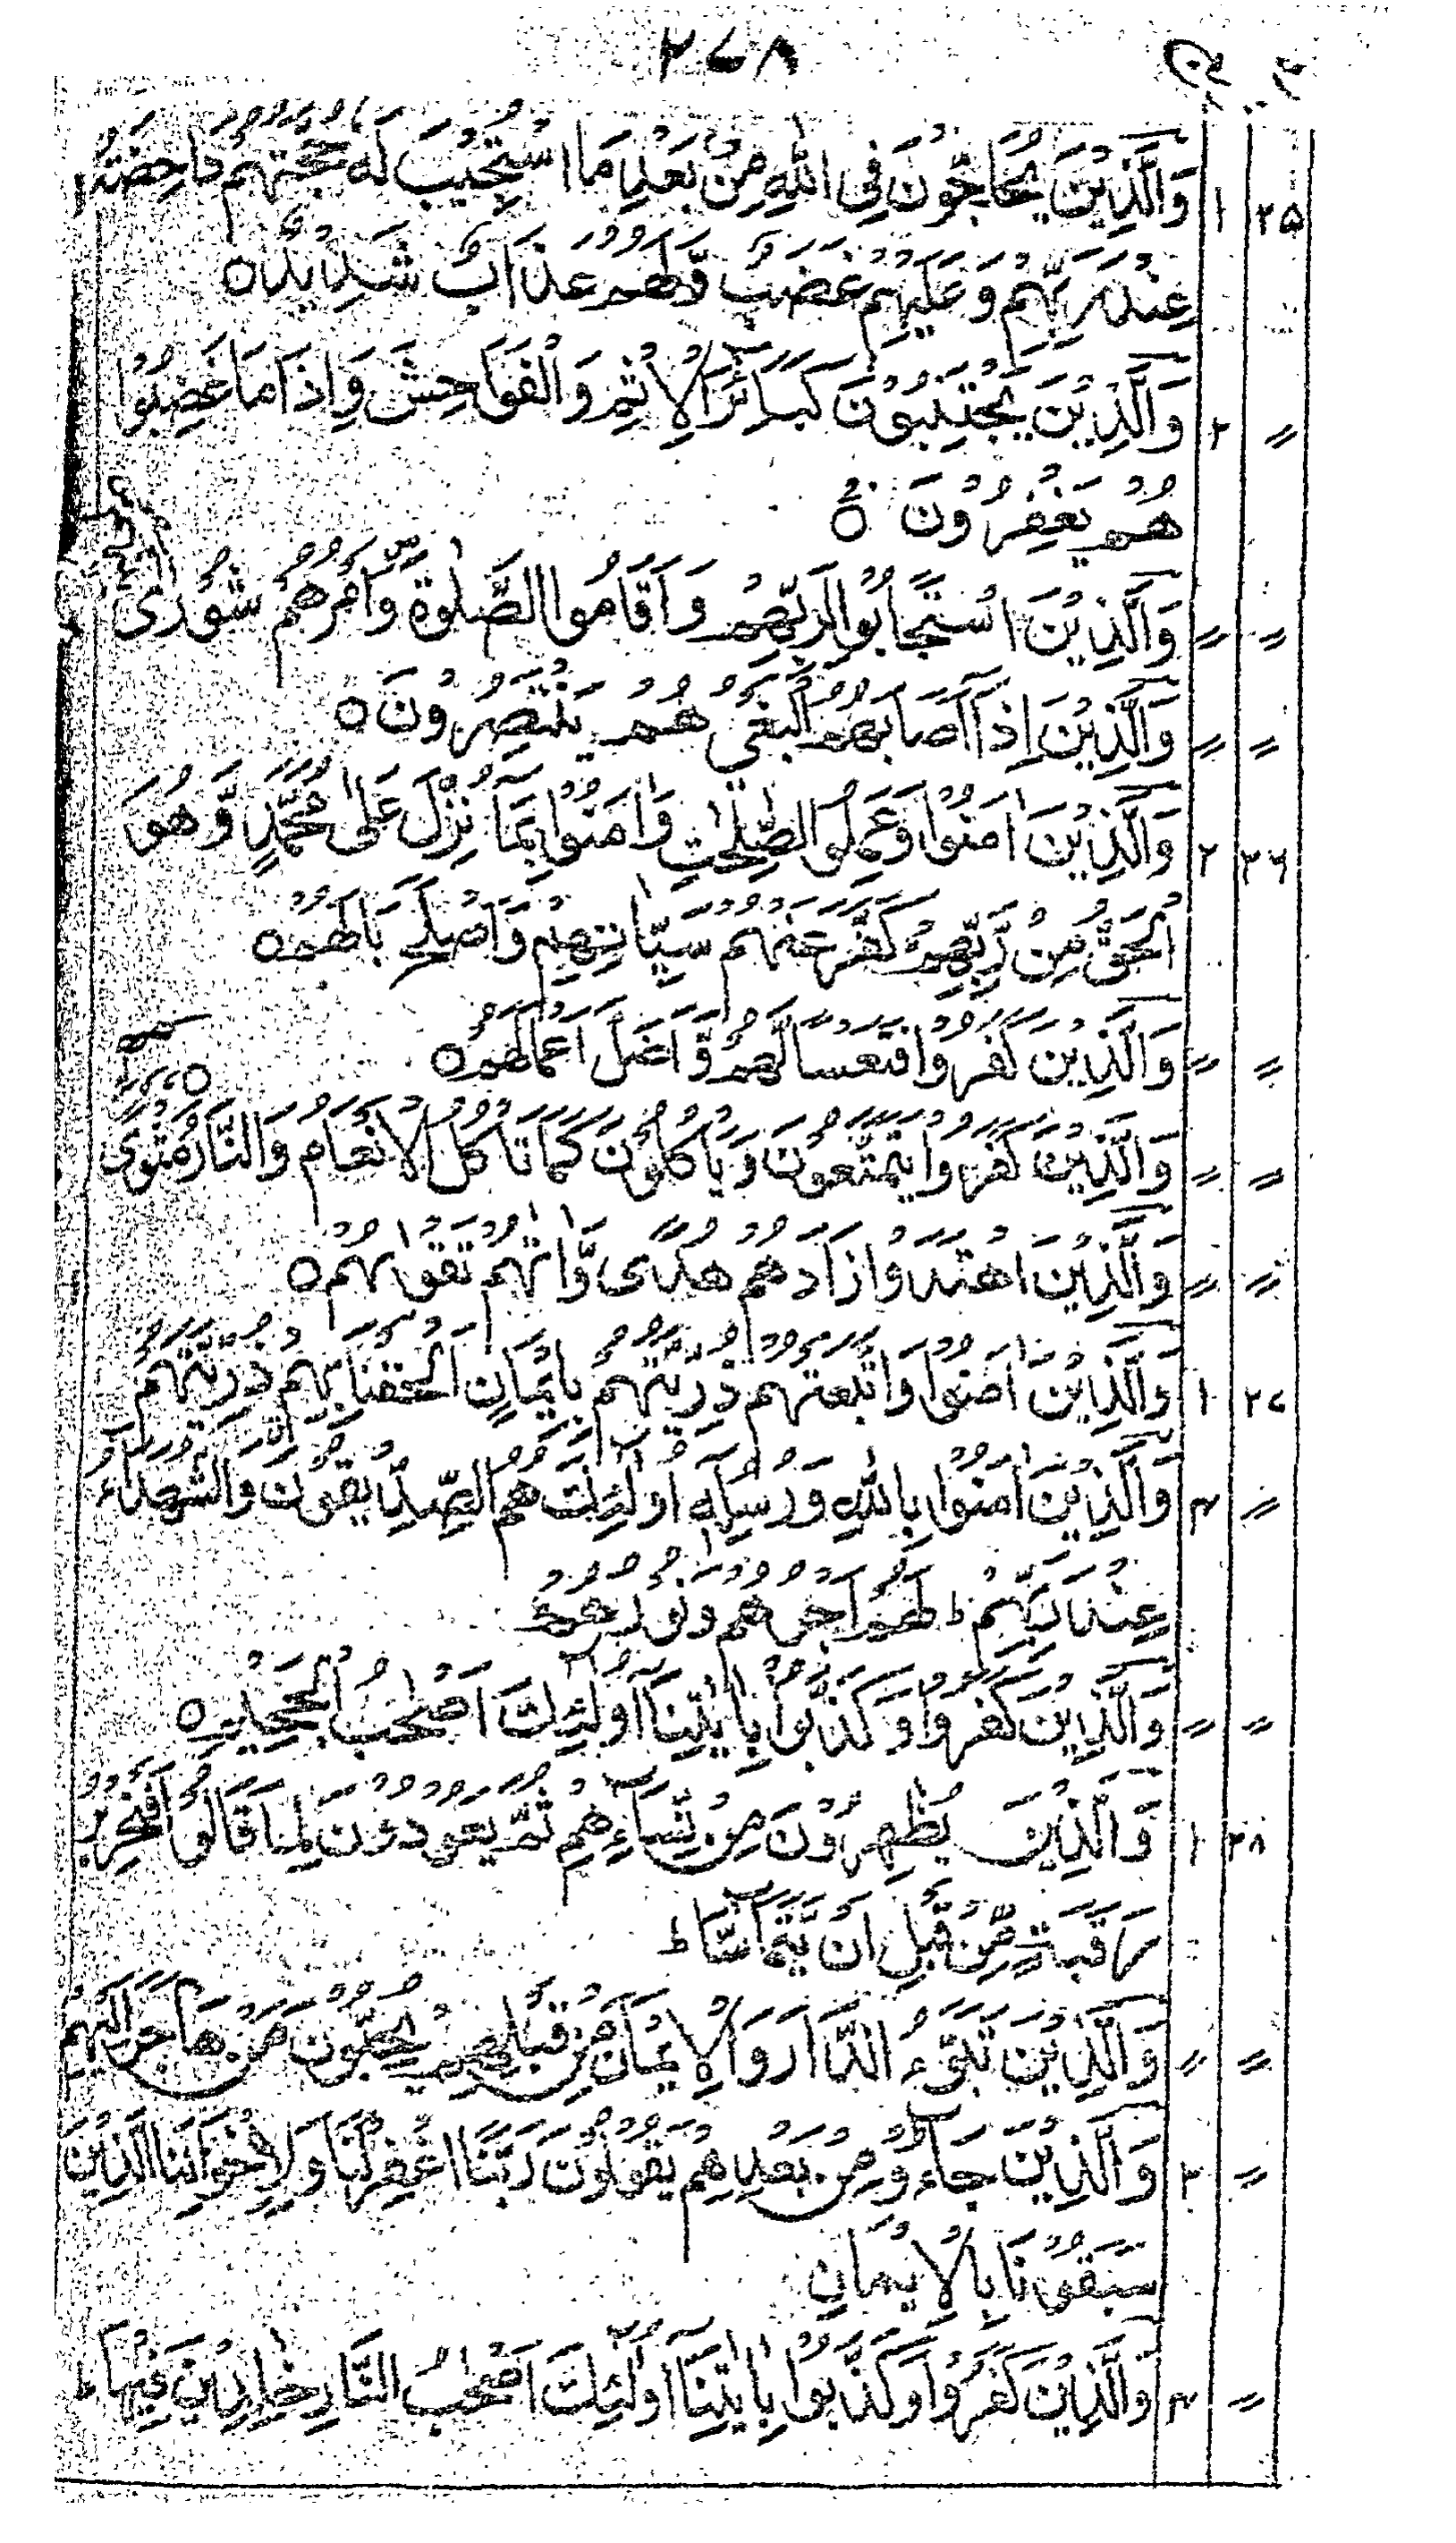 ۲۷۸
۲۵ ۱ وَالَّذِيْنَ يُحَاجُّوْنَ فِى اللّٰهِ مِنْۢ بَعْدِ مَا اسْتُجِيْبَ لَهٗ حُجَّتُهُمْ دَاحِضَةٌ
عِنْدَ رَبِّهِمْ وَعَلَيْهِمْ غَضَبٌ وَّلَهُمْ عَذَابٌ شَدِيْدٌ ○
〃 ۲ وَالَّذِيْنَ يَجْتَنِبُوْنَ كَبٰٓئِرَ الْاِثْمِ وَالْفَوَاحِشَ وَاِذَا مَا غَضِبُوْا
هُمْ يَغْفِرُوْنَ ○
〃 〃 وَالَّذِيْنَ اسْتَجَابُوْا لِرَبِّهِمْ وَاَقَامُوا الصَّلٰوةَ وَاَمْرُهُمْ شُوْرٰى
〃 〃 وَالَّذِيْنَ اِذَآ اَصَابَهُمُ الْبَغْىُ هُمْ يَنْتَصِرُوْنَ ○
۲۶ ۲ وَالَّذِيْنَ اٰمَنُوْا وَعَمِلُوا الصّٰلِحٰتِ وَاٰمَنُوْا بِمَا نُزِّلَ عَلٰى مُحَمَّدٍ وَّهُوَ
الْحَقُّ مِنْ رَّبِّهِمْ كَفَّرَ عَنْهُمْ سَيِّاٰتِهِمْ وَاَصْلَحَ بَالَهُمْ ○
〃 〃 وَالَّذِيْنَ كَفَرُوْا فَتَعْسًا لَّهُمْ وَاَضَلَّ اَعْمَالَهُمْ ○
〃 〃 وَالَّذِيْنَ كَفَرُوْا يَتَمَتَّعُوْنَ وَيَاْكُلُوْنَ كَمَا تَاْكُلُ الْاَنْعَامُ وَالنَّارُ مَثْوًى
〃 〃 وَالَّذِيْنَ اهْتَدَوْا زَادَهُمْ هُدًى وَّاٰتٰهُمْ تَقْوٰىهُمْ ○
۲۷ ۱ وَالَّذِيْنَ اٰمَنُوْا وَاتَّبَعَتْهُمْ ذُرِّيَّتُهُمْ بِاِيْمَانٍ اَلْحَقْنَا بِهِمْ ذُرِّيَّتَهُمْ
〃 ۴ وَالَّذِيْنَ اٰمَنُوْا بِاللّٰهِ وَرُسُلِهٖٓ اُولٰٓئِكَ هُمُ الصِّدِّيْقُوْنَ وَالشُّهَدَآءُ
عِنْدَ رَبِّهِمْ ط لَهُمْ اَجْرُهُمْ وَنُوْرُهُمْ
〃 〃 وَالَّذِيْنَ كَفَرُوْا وَكَذَّبُوْا بِاٰيٰتِنَآ اُولٰٓئِكَ اَصْحٰبُ الْجَحِيْمِ ○
۲۸ ۱ وَالَّذِيْنَ يُظٰهِرُوْنَ مِنْ نِّسَآءِهِمْ ثُمَّ يَعُوْدُوْنَ لِمَا قَالُوْا فَتَحْرِيْرُ
رَقَبَةٍ مِّنْ قَبْلِ اَنْ يَّتَمَآسَّا ط
〃 〃 وَالَّذِيْنَ تَبَوَّءُ الدَّارَ وَالْاِيْمَانَ مِنْ قَبْلِهِمْ يُحِبُّوْنَ مَنْ هَاجَرَ اِلَيْهِمْ
〃 ۳ وَالَّذِيْنَ جَآءُوْ مِنْۢ بَعْدِهِمْ يَقُوْلُوْنَ رَبَّنَا اغْفِرْ لَنَا وَلِاِخْوَانِنَا الَّذِيْنَ
سَبَقُوْنَا بِالْاِيْمَانِ
〃 ۴ وَالَّذِيْنَ كَفَرُوْا وَكَذَّبُوْا بِاٰيٰتِنَآ اُولٰٓئِكَ اَصْحٰبُ النَّارِ خٰلِدِيْنَ فِيْهَا ط